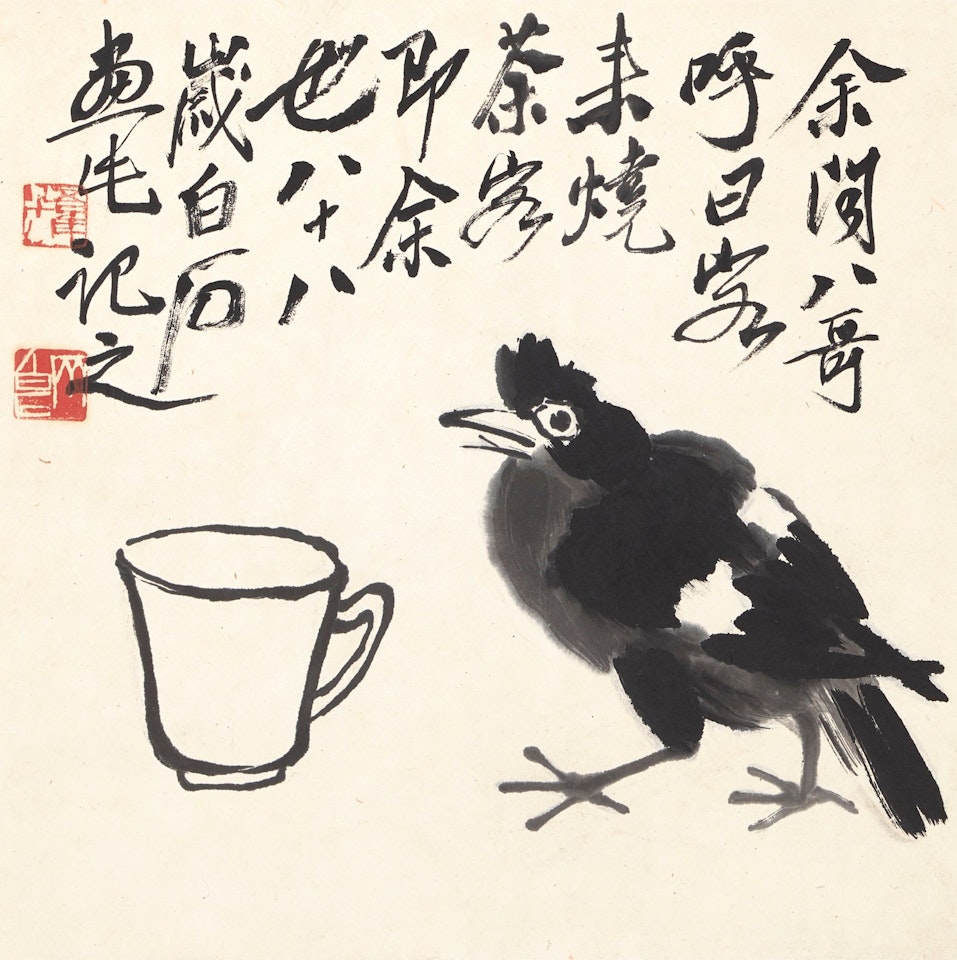 余聞八哥
呼曰客
来燒
茶客
即余
也八十八
歲白石
畫此記之